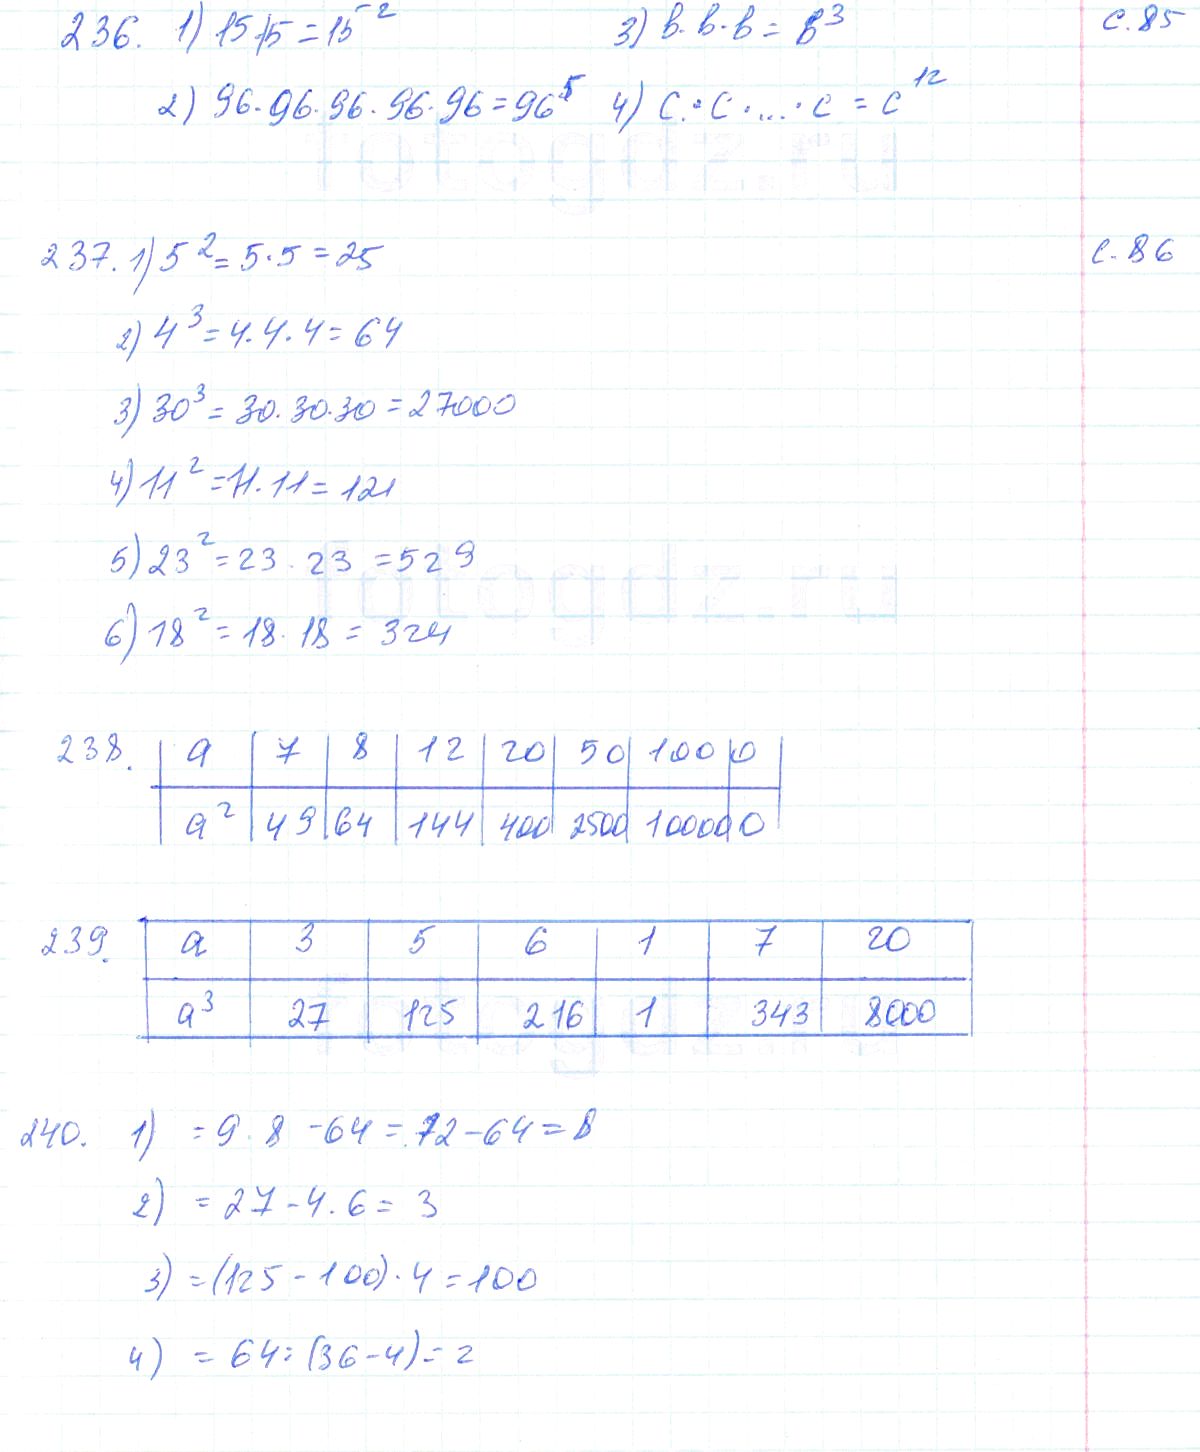 236. 1) 15·15 = 15² 3) b·b·b = b³ с. 85
2) 96·96·96·96·96 = 96⁵ 4) c·c·...·c = c¹²
fotogdz.ru
237. 1) 5² = 5·5 = 25 с. 86
2) 4³ = 4·4·4 = 64
3) 30³ = 30·30·30 = 27000
4) 11² = 11·11 = 121
5) 23² = 23·23 = 529
fotogdz.ru
6) 18² = 18·18 = 324
238. a 7 8 12 20 50 100 0
a² 49 64 144 400 2500 10000 0
239. a 3 5 6 1 7 20
a³ 27 125 216 1 343 8000
fotogdz.ru
240. 1) = 9·8 - 64 = 72 - 64 = 8
2) = 27 - 4·6 = 3
3) = (125 - 100)·4 = 100
4) = 64 : (36 - 4) = 2